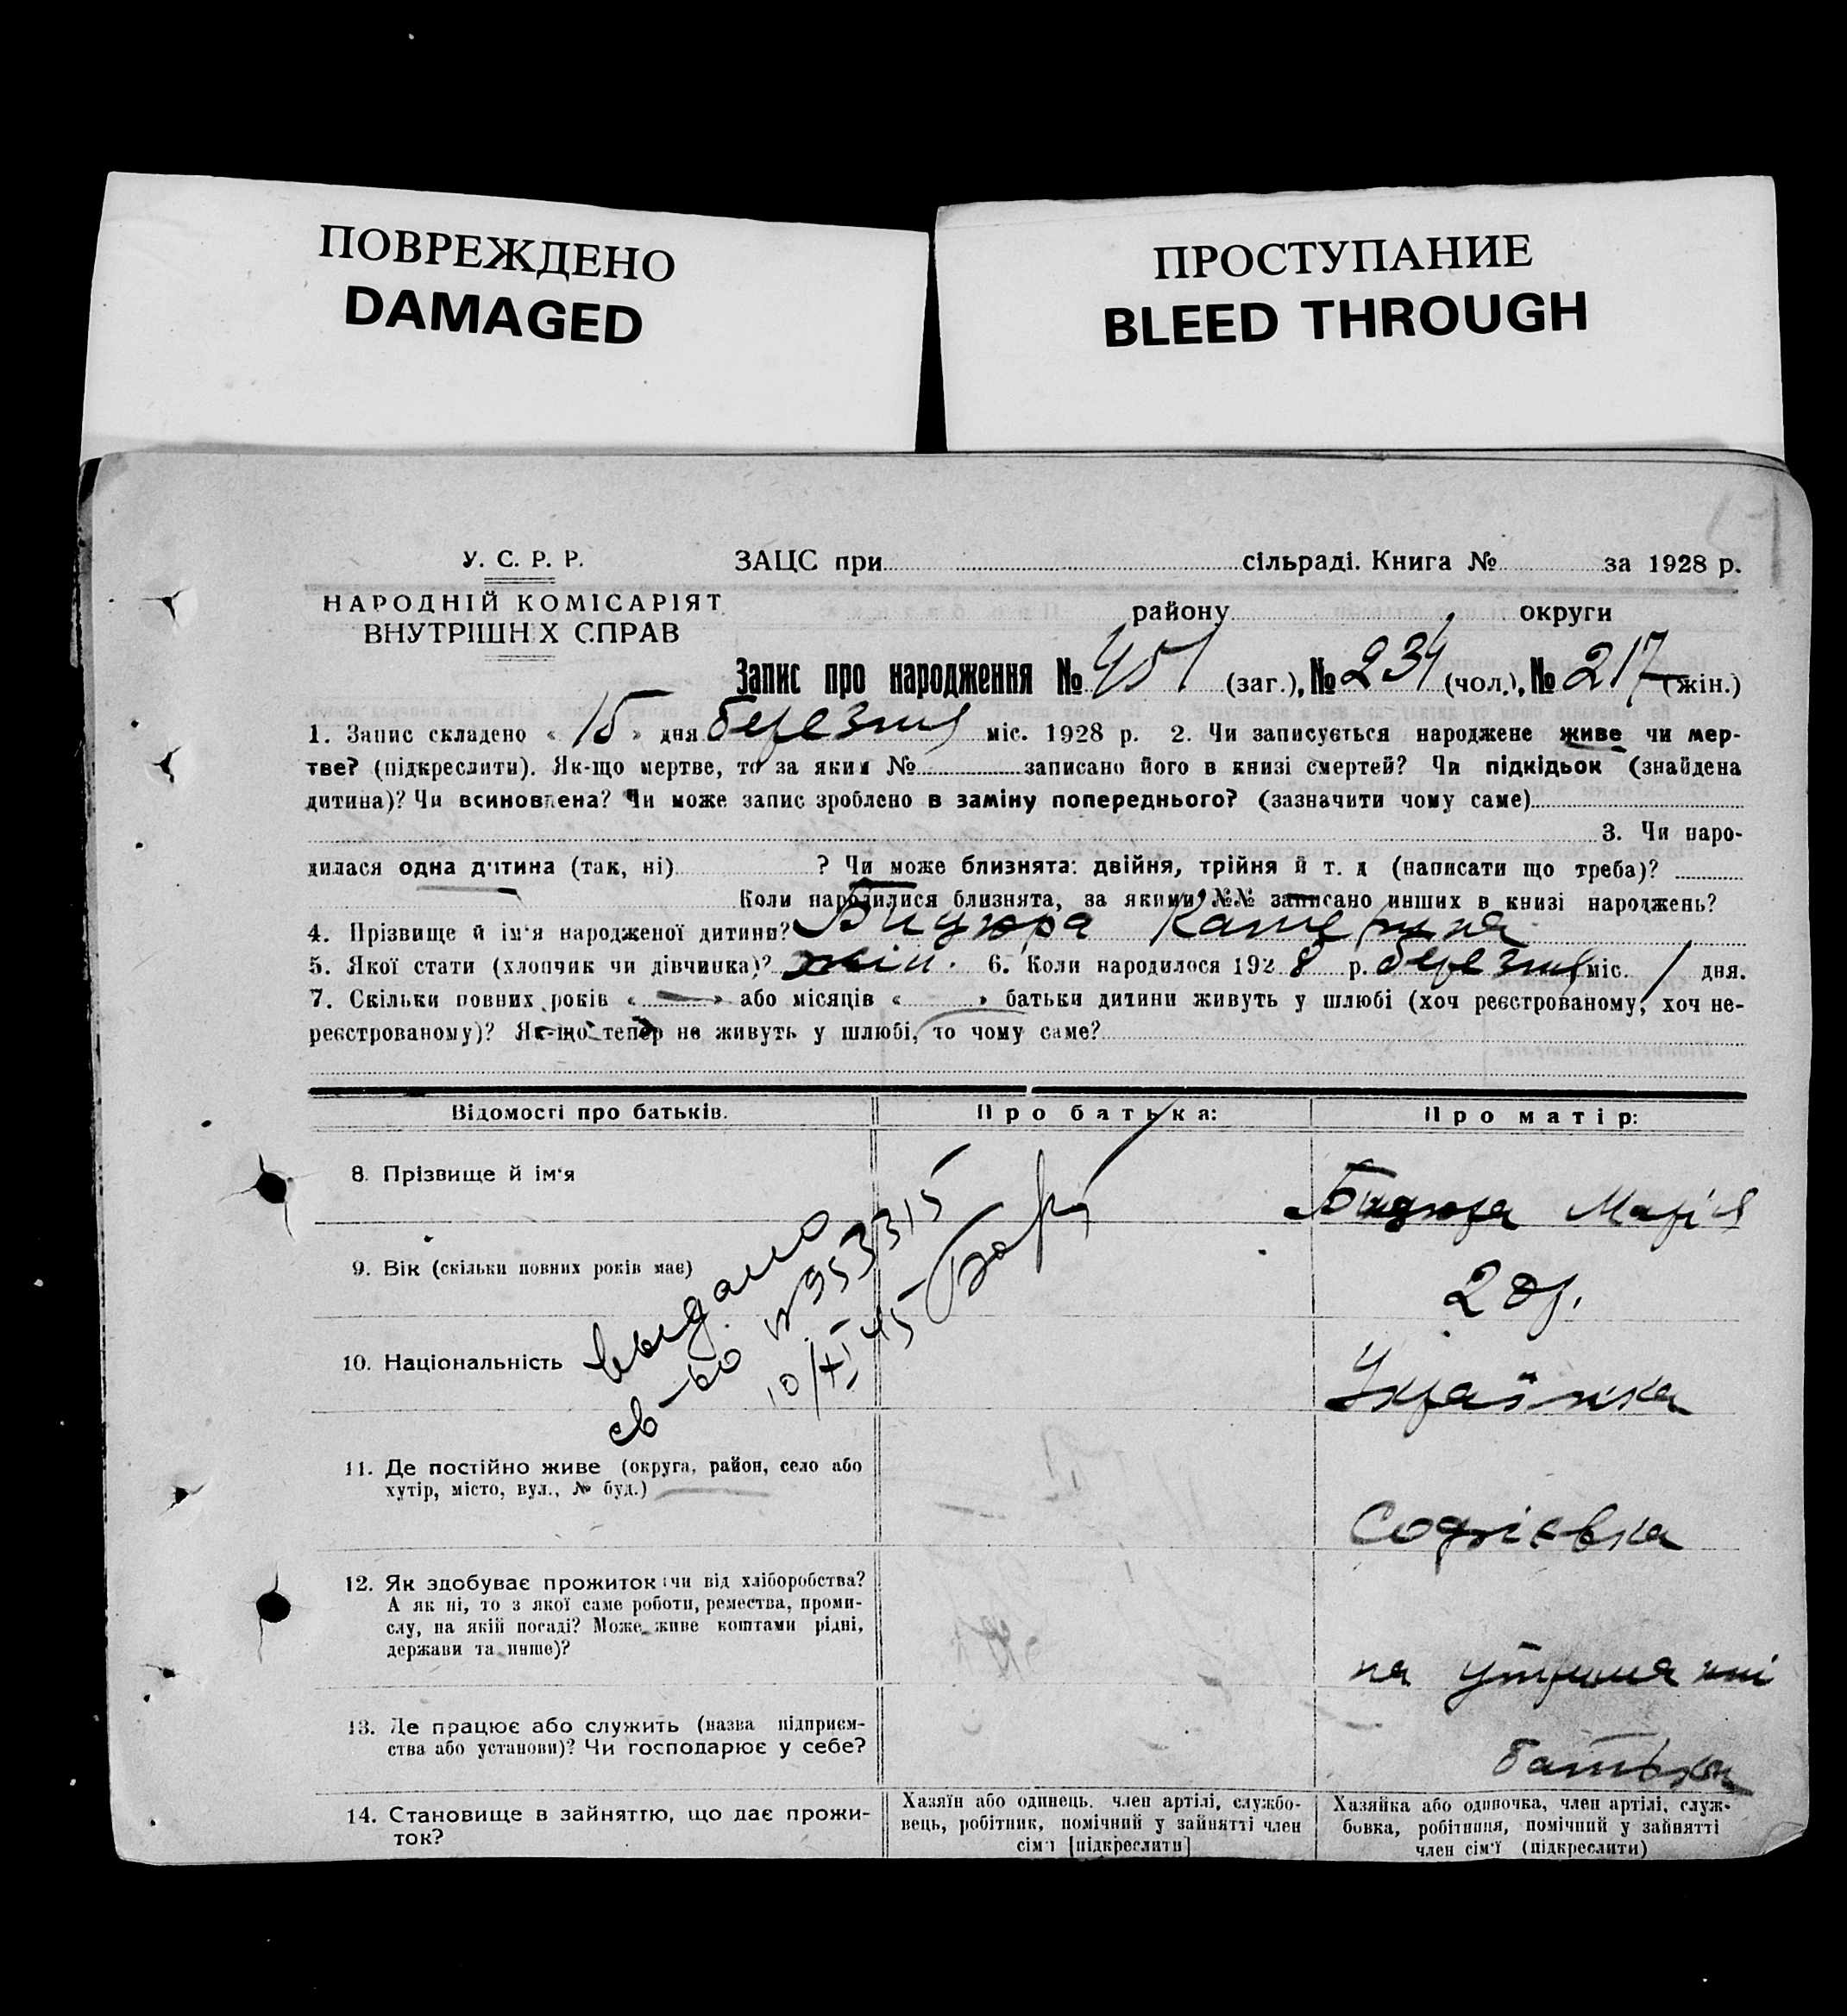 ПОВРЕЖДЕНО
DAMAGED
ПРОСТУПАНИЕ
BLEED THROUGH
У. С. Р. Р.
НАРОДНІЙ КОМІСАРІЯТ
ВНУТРІШНІХ СПРАВ
ЗАЦС при сільраді. Книга № за 1928 р.
району округи
Запис про народження № 451 (заг.), № 234 (чол.), № 217 (жін.)
1. Запис складено « 15 » дня березня міс. 1928 р. 2. Чи записується народжене живе чи мер-
тве? (підкреслити). Як-що мертве, то за яким № записано його в книзі смертей? Чи підкідьок (знайдена
дитина)? Чи всиновлена? Чи може запис зроблено в заміну попереднього? (зазначити чому саме)
3. Чи наро-
дилася одна дитина (так, ні) ? Чи може близнята: двійня, трійня й т. д (написати що треба)?
Коли народилися близнята, за якими №№ записано инших в книзі народжень?
4. Прізвище й ім'я народженої дитини? Бидюра Катерина
5. Якої стати (хлопчик чи дівчинка)? жін. 6. Коли народилося 1928 р. березня міс. 1 дня.
7. Скільки повних років « — » або місяців « » батьки дитини живуть у шлюбі (хоч реєстрованому, хоч не-
реєстрованому)? Як-що тепер не живуть у шлюбі, то чому саме?
Відомості про батьків.
Про батька:
Про матір:
8. Прізвище й ім'я
Бидюра Марія
9. Вік (скільки повних років має)
20р.
10. Національність
Українка
выдано
св-во №953315
10/XI 45
11. Де постійно живе (округа, район, село або
хутір, місто, вул., № буд.)
Софієвка
12. Як здобуває прожиток: чи від хліборобства?
А як ні, то з якої саме роботи, ремества, проми-
слу, на якій посаді? Може живе коштами рідні,
держави та инше)?
на утриманні
13. Де працює або служить (назва підприєм-
ства або установи)? Чи господарює у себе?
батька
14. Становище в зайняттю, що дає прожи-
ток?
Хазяїн або одинець. член артілі, службо-
вець, робітник, помічний у зайнятті член
сім'ї [підкреслити]
Хазяйка або одиночка, член артілі, служ-
бовка, робітниця, помічний у зайнятті
член сім'ї (підкреслити)